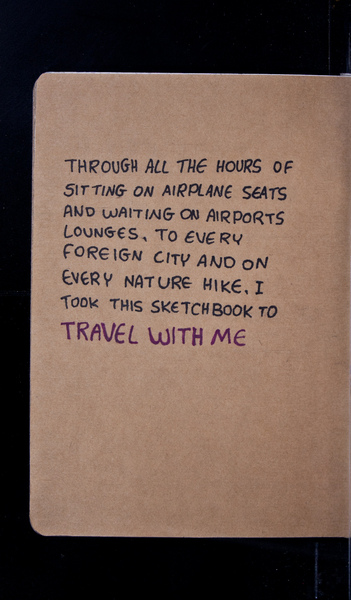 THROUGH ALL THE HOURS OF
SITTING ON AIRPLANE SEATS
AND WAITING ON AIRPORTS
LOUNGES, TO EVERY
FOREIGN CITY AND ON
EVERY NATURE HIKE, I
TOOK THIS SKETCHBOOK TO
TRAVEL WITH ME